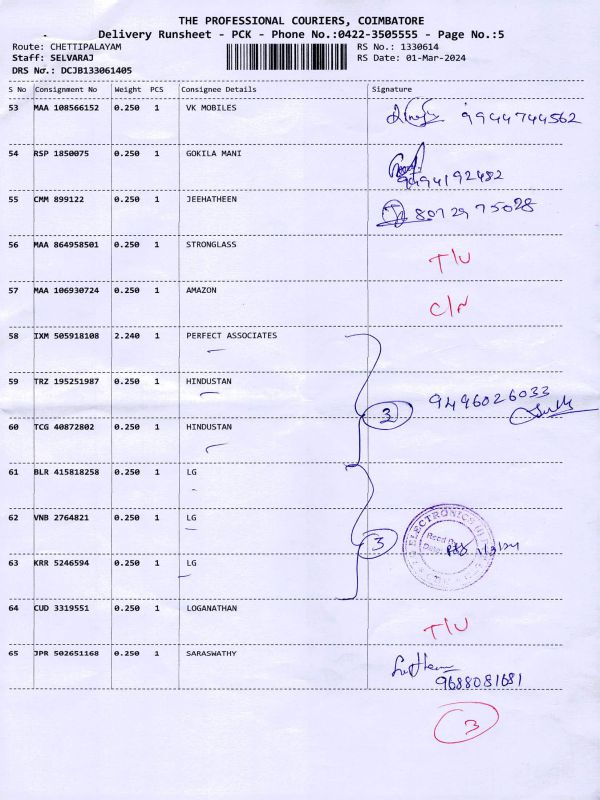 THE PROFESSIONAL COURIERS, COIMBATORE
Delivery Runsheet - PCK - Phone No.:0422-3505555 - Page No.:5
Route: CHETTIPALAYAM RS No.: 1330614
Staff: SELVARAJ RS Date: 01-Mar-2024
DRS No.: DCJB133061405
S No Consignment No Weight PCS Consignee Details Signature
53 MAA 108566152 0.250 1 VK MOBILES 9944744562
54 RSP 1850075 0.250 1 GOKILA MANI
9494192482
55 CMM 899122 0.250 1 JEEHATHEEN 8072975028
56 MAA 864958501 0.250 1 STRONGLASS T/U
57 MAA 106930724 0.250 1 AMAZON C/N
58 IXM 505918108 2.240 1 PERFECT ASSOCIATES
59 TRZ 195251987 0.250 1 HINDUSTAN 9496026033
3
60 TCG 40872802 0.250 1 HINDUSTAN
61 BLR 415818258 0.250 1 LG
62 VNB 2764821 0.250 1 LG
ELECTRONICS
3
63 KRR 5246594 0.250 1 LG
64 CUD 3319551 0.250 1 LOGANATHAN T/U
65 JPR 502651168 0.250 1 SARASWATHY
9688081681
3